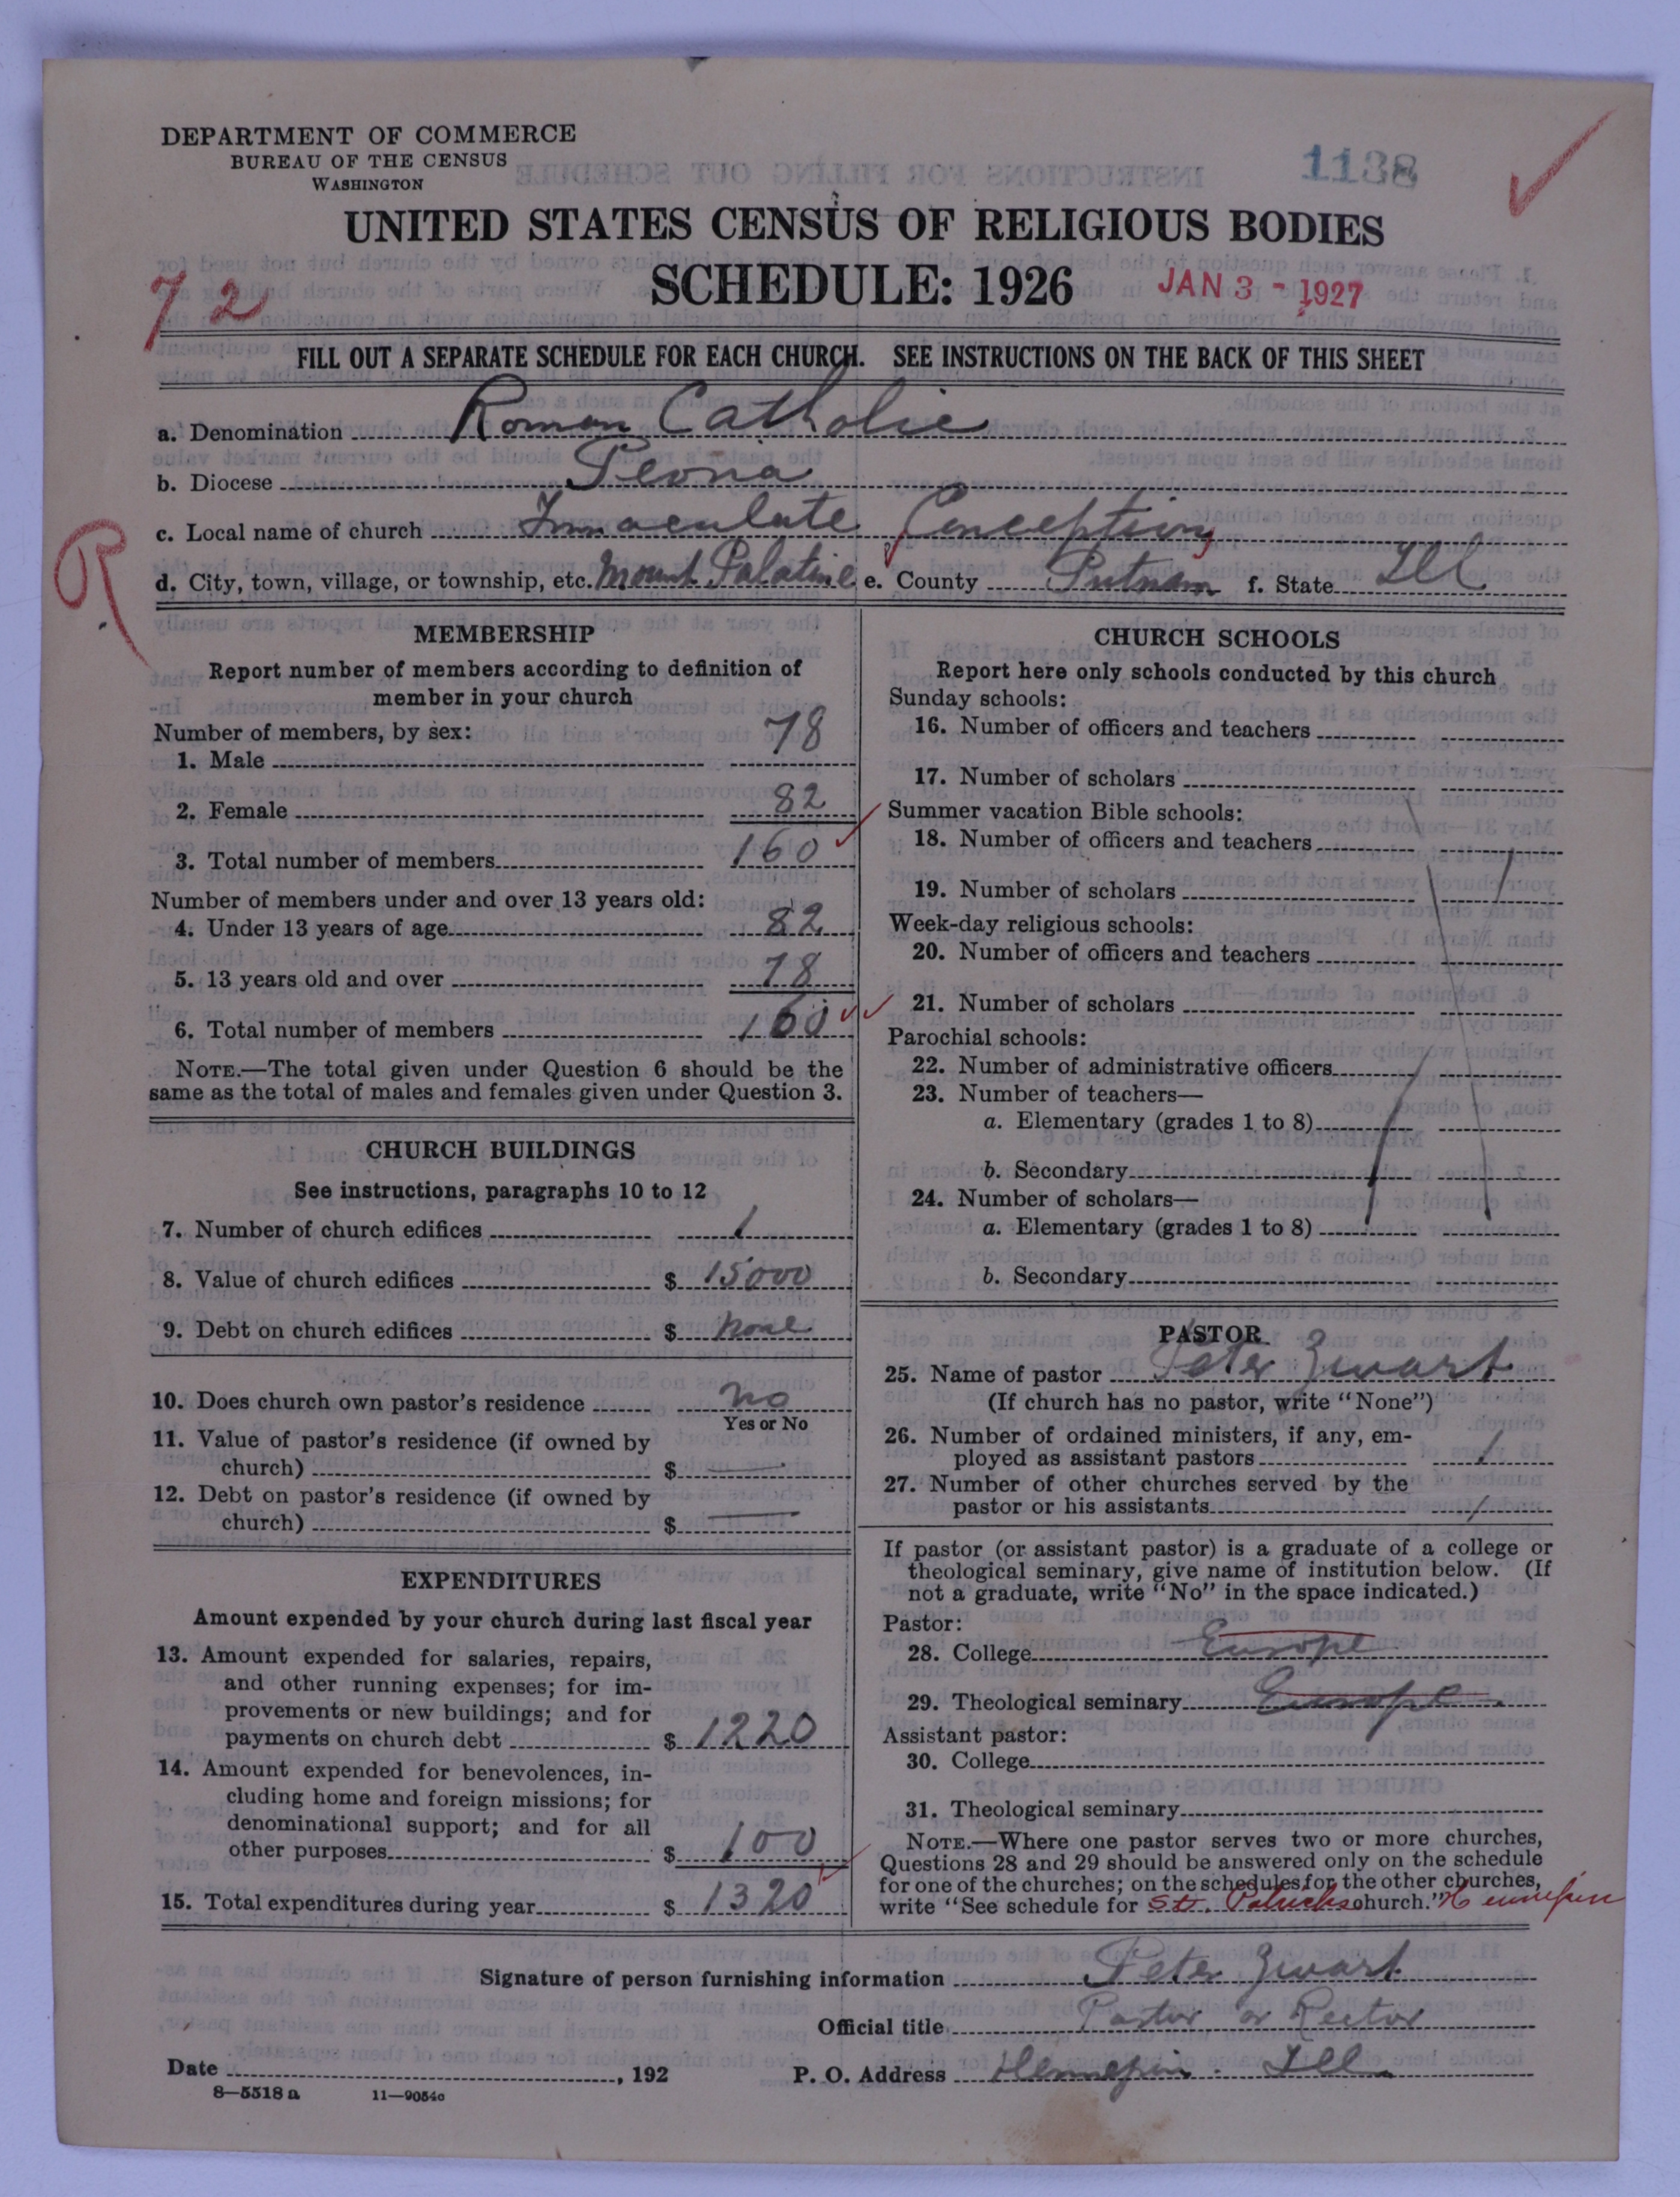 DEPARTMENT OF COMMERCE
BUREAU OF THE CENSUS
WASHINGTON
1138
UNITED STATES CENSUS OF RELIGIOUS BODIES
SCHEDULE: 1926
JAN 3 - 1927
72
FILL OUT A SEPARATE SCHEDULE FOR EACH CHURCH. SEE INSTRUCTIONS ON THE BACK OF THIS SHEET
a. Denomination Roman Catholic
b. Diocese Peoria
c. Local name of church Immaculate Conception
R
d. City, town, village, or township, etc. Mount Palatine e. County Putnam f. State Ill
MEMBERSHIP
Report number of members according to definition of
member in your church
Number of members, by sex:
1. Male 78
2. Female 82
3. Total number of members 160
Number of members under and over 13 years old:
4. Under 13 years of age 82
5. 13 years old and over 78
6. Total number of members 160
NOTE.—The total given under Question 6 should be the
same as the total of males and females given under Question 3.
CHURCH BUILDINGS
See instructions, paragraphs 10 to 12
7. Number of church edifices 1
8. Value of church edifices $ 15000
9. Debt on church edifices $ none
10. Does church own pastor's residence no
Yes or No
11. Value of pastor's residence (if owned by
church) $ —
12. Debt on pastor's residence (if owned by
church) $ —
EXPENDITURES
Amount expended by your church during last fiscal year
13. Amount expended for salaries, repairs,
and other running expenses; for im-
provements or new buildings; and for
payments on church debt $ 1220
14. Amount expended for benevolences, in-
cluding home and foreign missions; for
denominational support; and for all
other purposes $ 100
15. Total expenditures during year $ 1320
CHURCH SCHOOLS
Report here only schools conducted by this church
Sunday schools:
16. Number of officers and teachers
17. Number of scholars
Summer vacation Bible schools:
18. Number of officers and teachers
19. Number of scholars
Week-day religious schools:
20. Number of officers and teachers
21. Number of scholars
Parochial schools:
22. Number of administrative officers
23. Number of teachers—
a. Elementary (grades 1 to 8)
b. Secondary
24. Number of scholars—
a. Elementary (grades 1 to 8)
b. Secondary
PASTOR
25. Name of pastor Peter Zwart
(If church has no pastor, write "None")
26. Number of ordained ministers, if any, em-
ployed as assistant pastors 1
27. Number of other churches served by the
pastor or his assistants 1
If pastor (or assistant pastor) is a graduate of a college or
theological seminary, give name of institution below. (If
not a graduate, write "No" in the space indicated.)
Pastor:
28. College Europe
29. Theological seminary Europe
Assistant pastor:
30. College
31. Theological seminary
NOTE.—Where one pastor serves two or more churches,
Questions 28 and 29 should be answered only on the schedule
for one of the churches; on the schedules for the other churches,
write "See schedule for St. Patricks church." Hennepin
Signature of person furnishing information Peter Zwart
Official title Pastor or Rector
Date , 192 P. O. Address Hennepin. Ill
8—5518 a 11—9054c